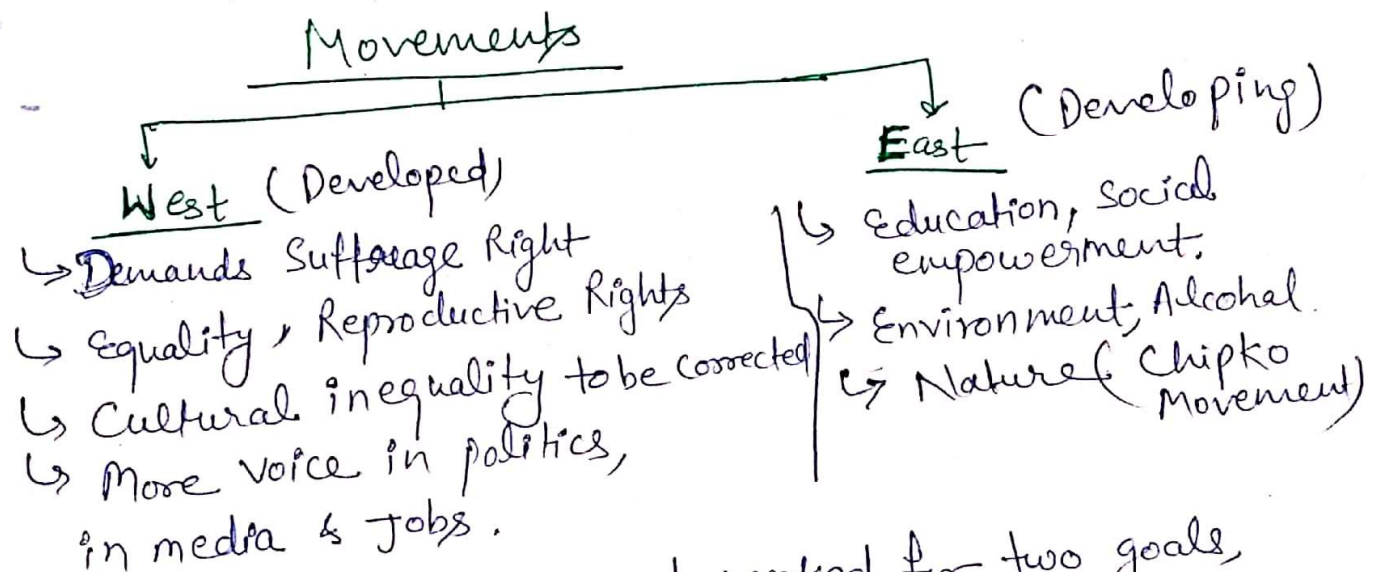 Movements
West (Developed)
↳ Demands Suffrage Right
↳ Equality, Reproductive Rights
↳ Cultural inequality to be corrected
↳ More voice in politics,
in media & Jobs.
East (Developing)
↳ Education, Social
empowerment.
↳ Environment, Alcohal.
↳ Nature ( Chipko
Movement)
for two goals,